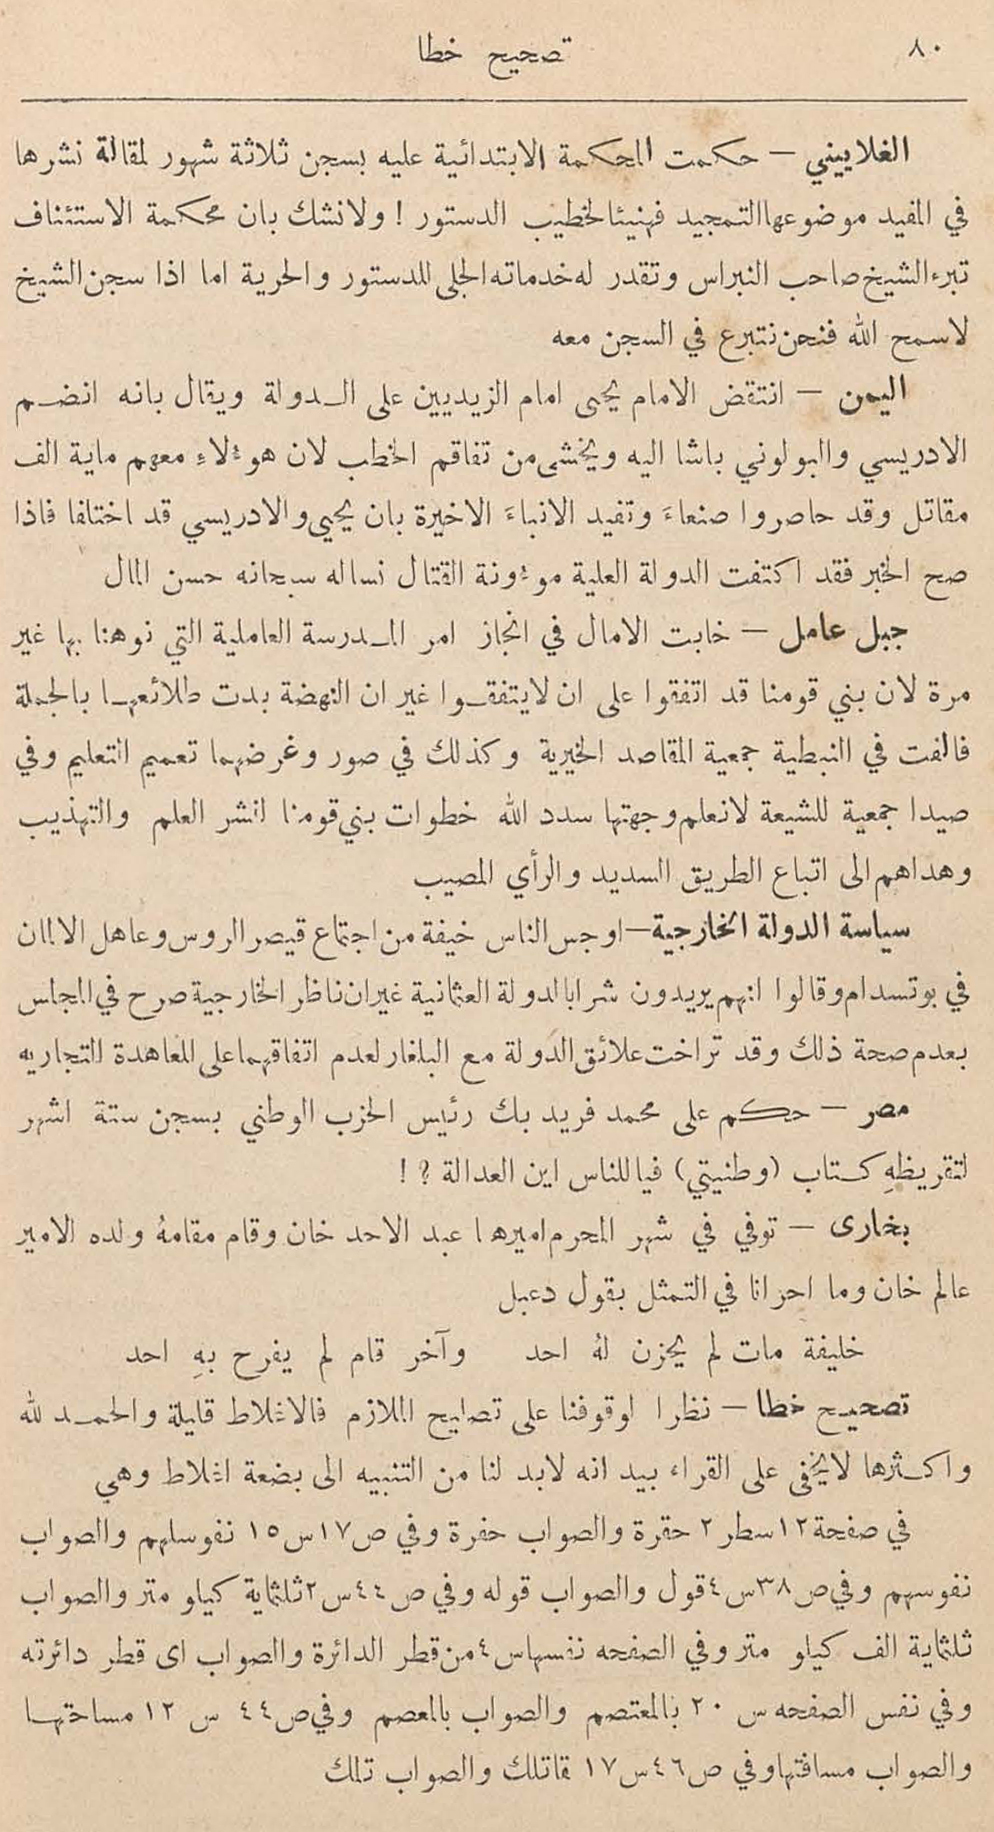 ٨٠
تصحيح خطا
الغلاييني — حكمت المحكمة الابتدائية عليه بسجن ثلاثة شهور لمقالة نشرها
في المفيد موضوعها التمجيد فهنيئا لخطيب الدستور ! ولا نشك بان محكمة الاستئناف
تبرء الشيخ صاحب النبراس وتقدر له خدماته الجلى للدستور والحرية اما اذا سجن الشيخ
لاسمح الله فنحن نتبرع في السجن معه
اليمن — انتقض الامام يحيى امام الزيديين على الـدولة ويقال بانه انضـم
الادريسي والبولوني باشا اليه ويخشى من تفاقم الخطب لان هوءلاءِ معهم ماية الف
مقاتل وقد حاصروا صنعاءَ وتفيد الانباءَ الاخيرة بان يحيى والادريسي قد اختلفا فاذا
صح الخبر فقد اكتفت الدولة العلية موءونة القتال نساله سبحانه حسن المال
جبل عامل — خابت الامال في انجاز امر المـدرسة العاملية التي نوهنا بها غير
مرة لان بني قومنا قد اتفقوا على ان لايتفقـوا غير ان النهضة بدت طلائعهـا بالجملة
فالفت في النبطية جمعية المقاصد الخيرية وكذلك في صور وغرضهما تعميم التعليم وفي
صيدا جمعية للشيعة لانعلم وجهتها سدد الله خطوات بني قومنا لنشر العلم والتهذيب
وهداهم الى اتباع الطريق السديد والرأي المصيب
سياسة الدولة الخارجية — اوجس الناس خيفة من اجتماع قيصر الروس وعاهل الالمان
في بوتسدام وقالوا انهم يريدون شرا بالدولة العثمانية غير ان ناظر الخارجية صرح في المجلس
بعدم صحة ذلك وقد تراخت علائق الدولة مع البلغار لعدم اتفاقهما على المعاهدة التجاريه
مصر — حكم على محمد فريد بك رئيس الحزب الوطني بسجن ستة اشهر
لتقريظهِ كتاب (وطنيتي) فياللناس اين العدالة ؟ !
بخارى — توفي في شهر المحرم اميرها عبد الاحد خان وقام مقامهُ ولده الامير
عالم خان وما احرانا في التمثل بقول دعبل
خليفة مات لم يحزن لهُ احد وآخر قام لم يفرح بهِ احد
تصحيـح خطا — نظرا لوقوفنا على تصليح الملازم فالاغلاط قليلة والحمـد لله
واكـثرها لايخفى على القراء بيد انه لابد لنا من التنبيه الى بضعة اغلاط وهي
في صفحة ١٢ سطر ٢ حقرة والصواب حفرة وفي ص ١٧ س ١٥ نفوسلهم والصواب
نفوسهم وفي ص ٣٨ س ٤ قول والصواب قوله وفي ص ٤٤ س ٢ ثلثماية كيلو متر والصواب
ثلثماية الف كيلو متر وفي الصفحه نفسها س ٤ من قطر الدائرة والصواب اى قطر دائرته
وفي نفس الصفحه س ٢٠ بالمعتصم والصواب بالمعصم وفي ص ٤٤ س ١٢ مساحتهـا
والصواب مسافتها وفي ص ٤٦ س ١٧ قاتلك والصواب تلك